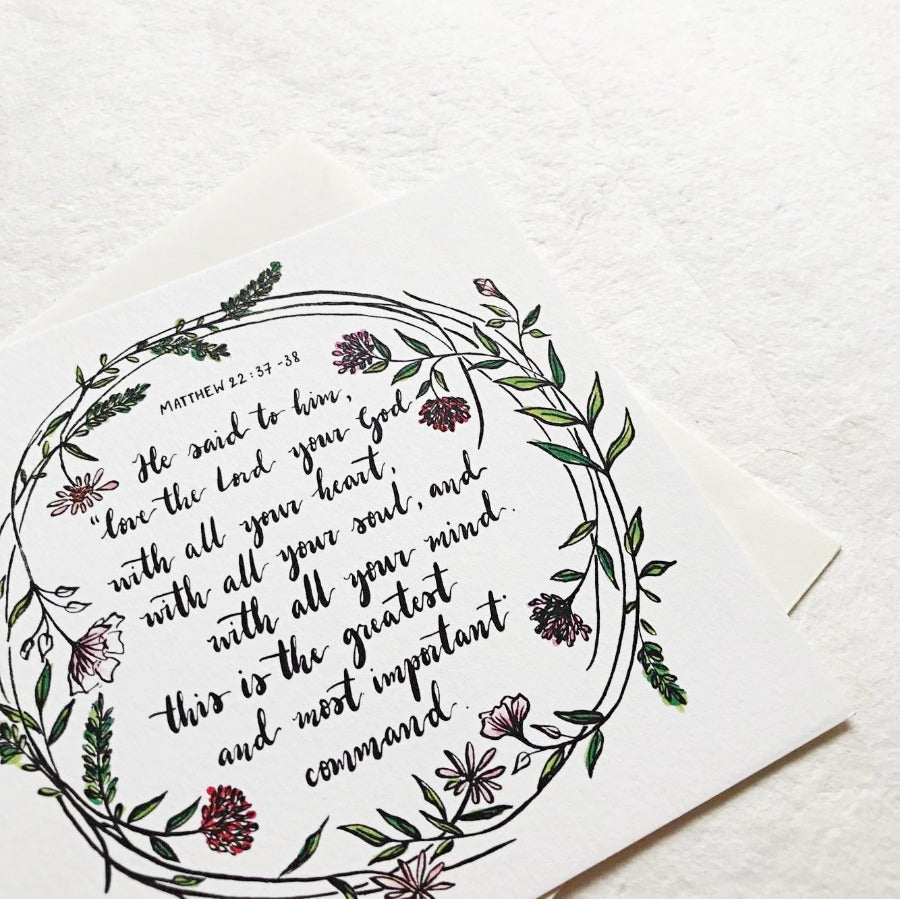 MATTHEW 22:37-38
He said to him,
"love the Lord your God
with all your heart,
with all your soul, and
with all your mind.
this is the greatest
and most important
command.